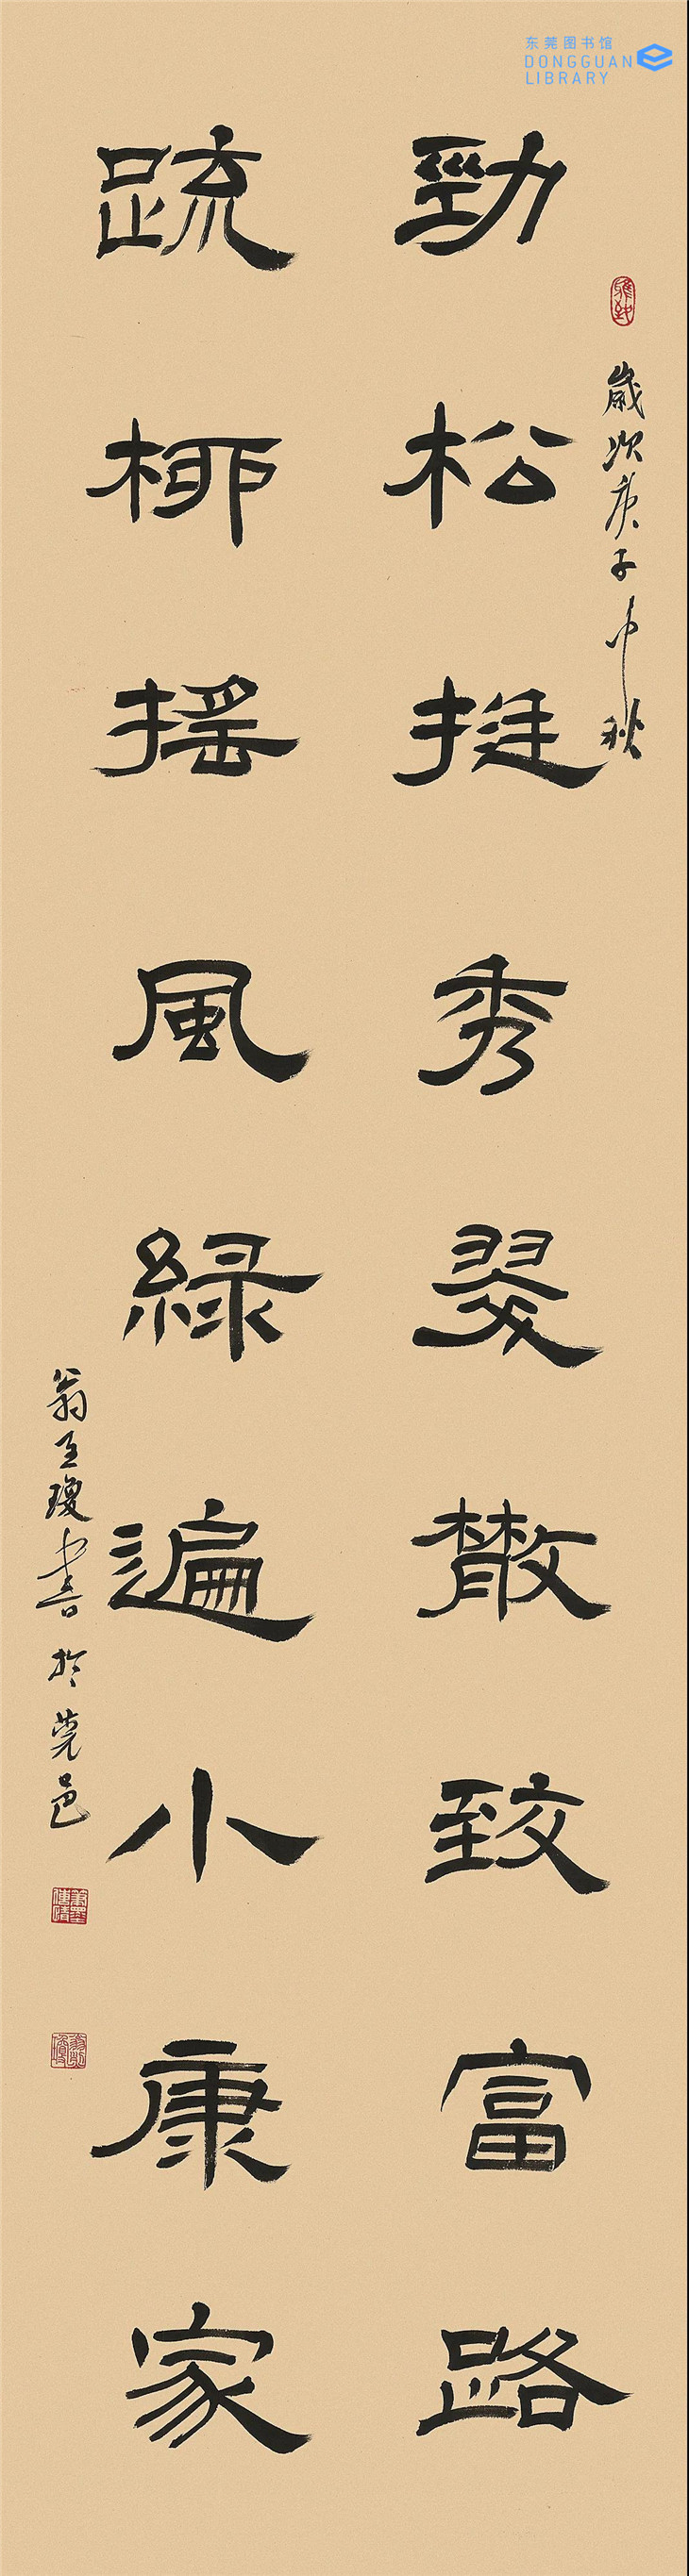 东莞图书馆
DONGGUAN
LIBRARY
歲次庚子中秋
勁松挺秀翠散致富路
疏柳摇風綠遍小康家
書於莞邑